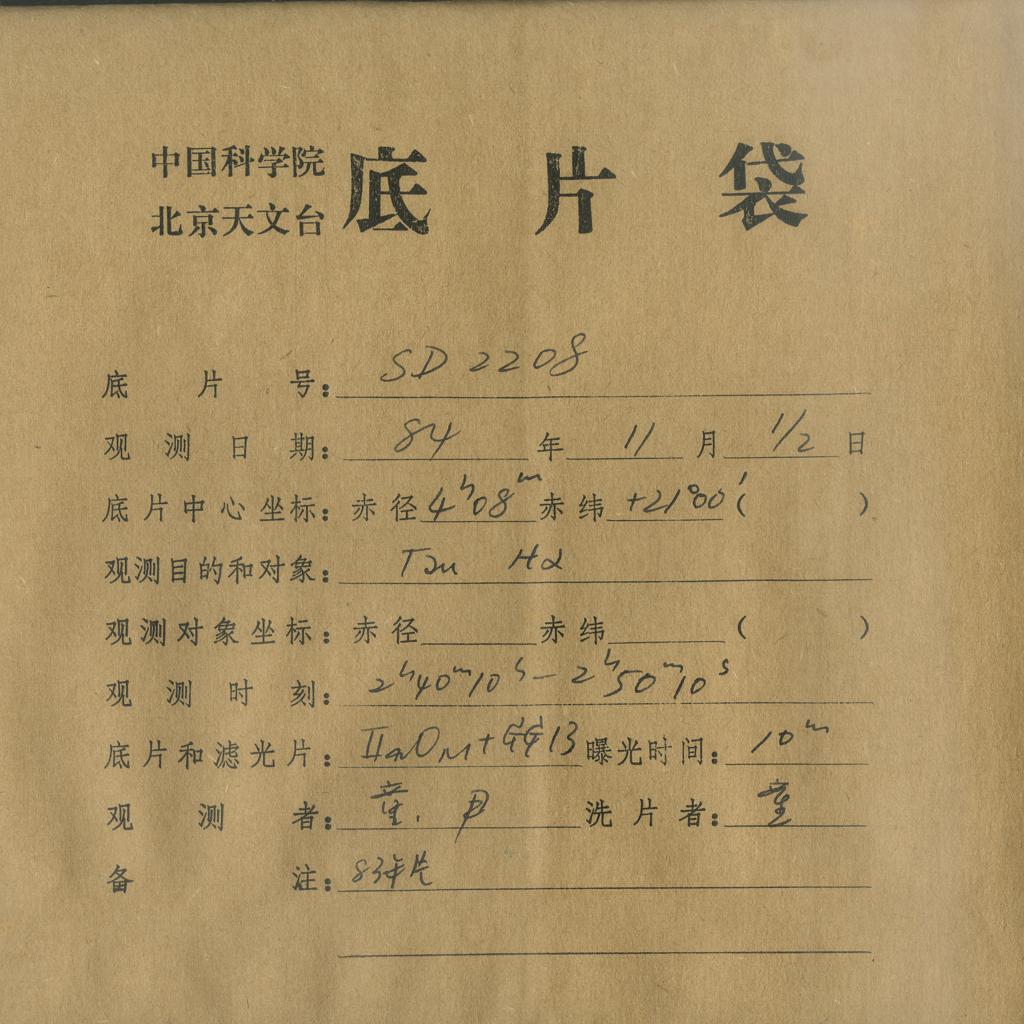 中国科学院
北京天文台
底片袋
底片号: SD 2208
观测日期: 84 年 11 月 1/2 日
底片中心坐标: 赤径 4ʰ08ᵐ 赤纬 +21°00′ ( )
观测目的和对象: Tau Hα
观测对象坐标: 赤径 赤纬 ( )
观测时刻: 2ʰ40ᵐ10ˢ — 2ʰ50ᵐ10ˢ
底片和滤光片: IIaO + GG13 曝光时间: 10ᵐ
观测者: 童. 洗片者: 童
备注: 83年片